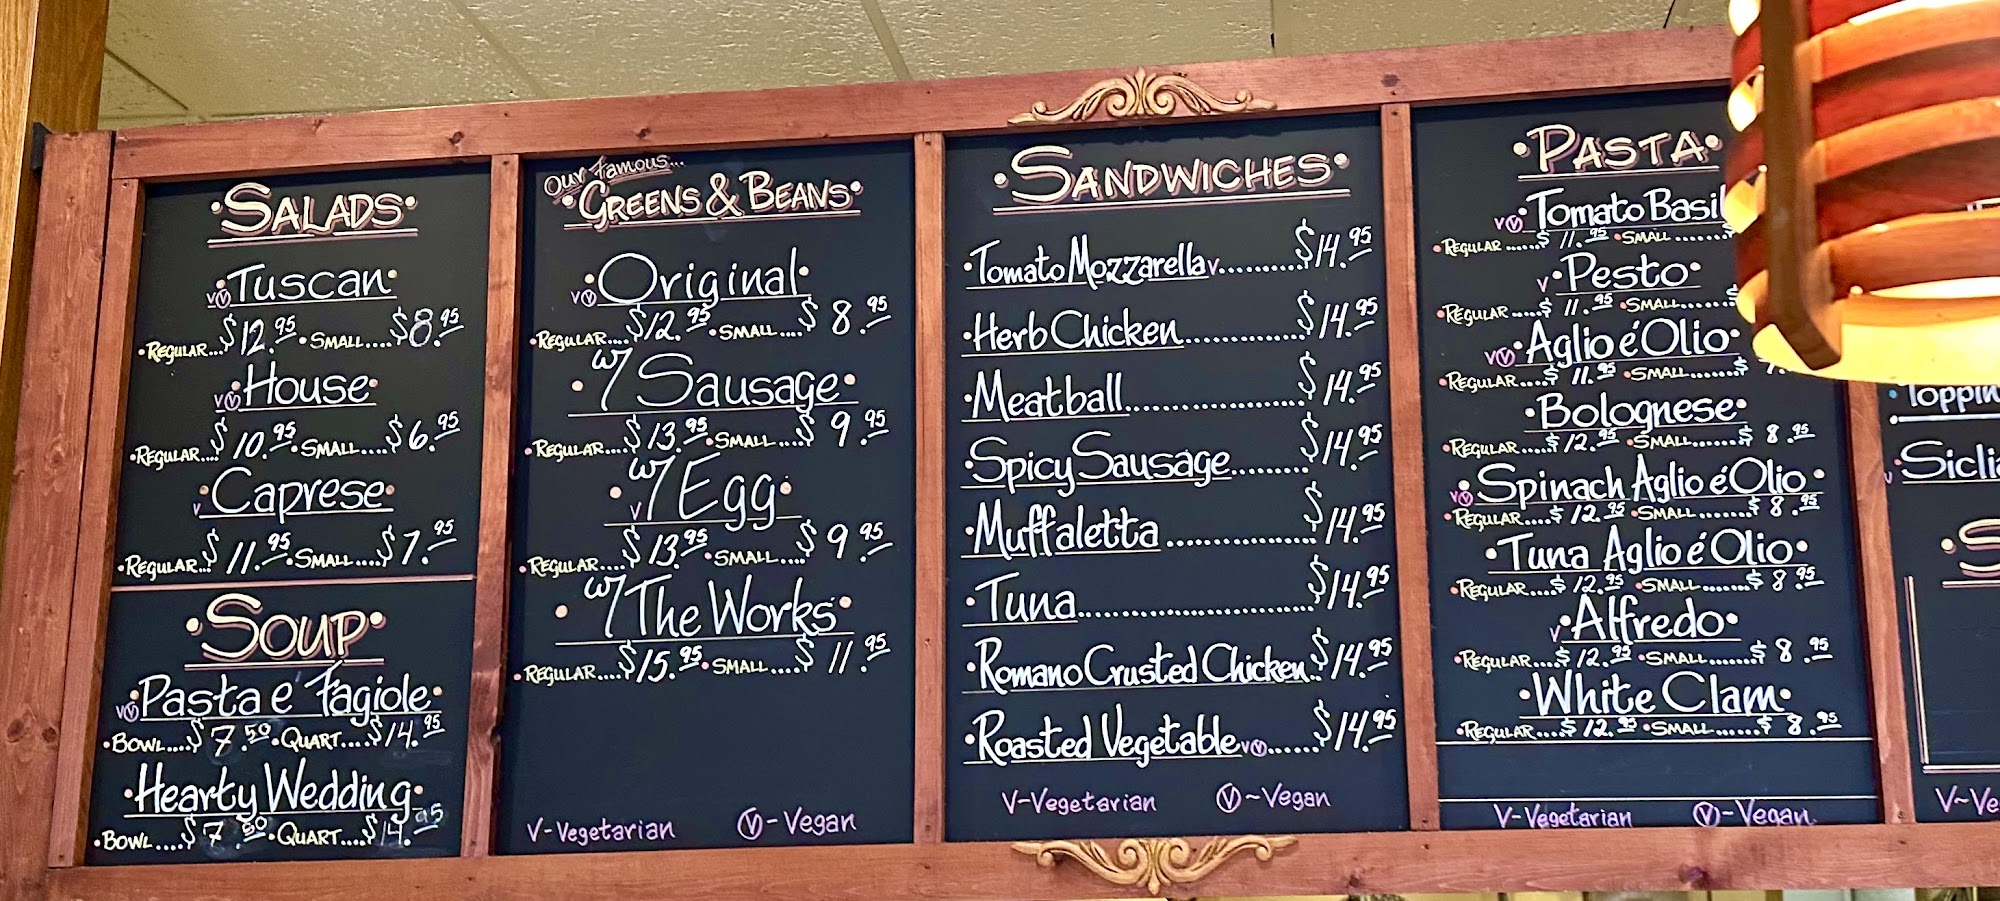 •SALADS•
V Ⓥ •Tuscan•
•REGULAR...$12.95 •SMALL....$8.95
V Ⓥ •House•
•REGULAR....$10.95 •SMALL....$6.95
V •Caprese•
•REGULAR...$11.95 •SMALL....$7.95
•SOUP•
V Ⓥ •Pasta e Fagiole•
•BOWL....$7.50 •QUART....$14.95
•Hearty Wedding•
•BOWL....$7.50 •QUART....$14.95
Our Famous...
•GREENS & BEANS•
V Ⓥ •Original•
•REGULAR....$12.95 •SMALL....$8.95
•w/ Sausage•
•REGULAR....$13.95 •SMALL....$9.95
V •w/ Egg•
•REGULAR....$13.95 •SMALL....$9.95
•w/ The Works•
•REGULAR....$15.95 •SMALL....$11.95
V-Vegetarian Ⓥ-Vegan
•SANDWICHES•
•Tomato Mozzarella V..........$14.95
•Herb Chicken...............$14.95
•Meatball....................$14.95
•Spicy Sausage........$14.95
•Muffaletta................$14.95
•Tuna..........................$14.95
•Romano Crusted Chicken..$14.95
•Roasted Vegetable V Ⓥ......$14.95
V-Vegetarian Ⓥ-Vegan
•PASTA•
V Ⓥ •Tomato Basil
•REGULAR......$11.95 •SMALL.......$
V •Pesto•
•REGULAR.....$11.95 •SMALL.......$
V Ⓥ •Aglio é Olio•
•REGULAR....$11.95 •SMALL.......$7.
•Bolognese•
•REGULAR....$12.95 •SMALL.......$8.95
V Ⓥ •Spinach Aglio é Olio•
•REGULAR....$12.95 •SMALL.......$8.95
•Tuna Aglio é Olio•
•REGULAR....$12.95 •SMALL.......$8.95
V •Alfredo•
•REGULAR....$12.95 •SMALL.......$8.95
•White Clam•
•REGULAR....$12.95 •SMALL.......$8.95
V-Vegetarian Ⓥ-Vegan
•Toppin
V •Sicli
•S
V-Ve